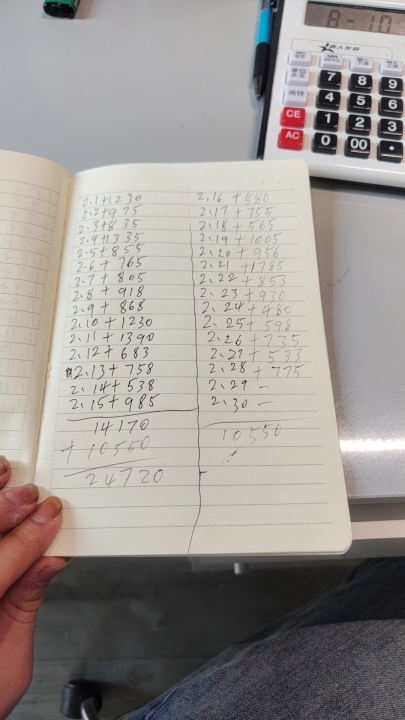 2.1+1230
2.2+975
2.3+835
2.4+1335
2.5+855
2.6+765
2.7+805
2.8+918
2.9+868
2.10+1230
2.11+1390
2.12+683
2.13+758
2.14+538
2.15+985
14170
+10550
24720
2.16+580
2.17+755
2.18+565
2.19+1005
2.20+956
2.21+1785
2.22+853
2.23+930
2.24+480
2.25+598
2.26+735
2.27+533
2.28+775
2.29-
2.30-
10550
8-10
7 8 9
4 5 6
CE 1 2 3
AC 0 00 •